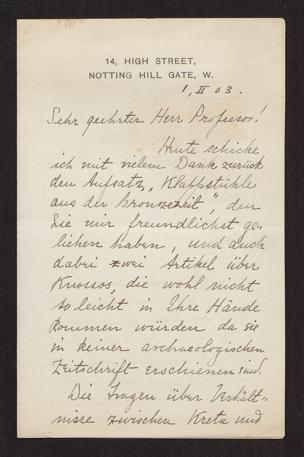 14, HIGH STREET,
NOTTING HILL GATE, W.
1, II 03.
Sehr geehrter Herr Professor!
Heute schicke
ich mit vielem Dank zurück
den Aufsatz, „Klappstühle
aus der Bronzezeit", den
Sie mir freundlichst ge-
liehen haben, und auch
dabei zwei Artikel über
Knossos, die wohl nicht
so leicht in Ihre Hände
kommen würden da sie
in keiner archaeologischen
Zeitschrift erschienen sind.
Die Fragen über Verhält-
nisse zwischen Kreta und